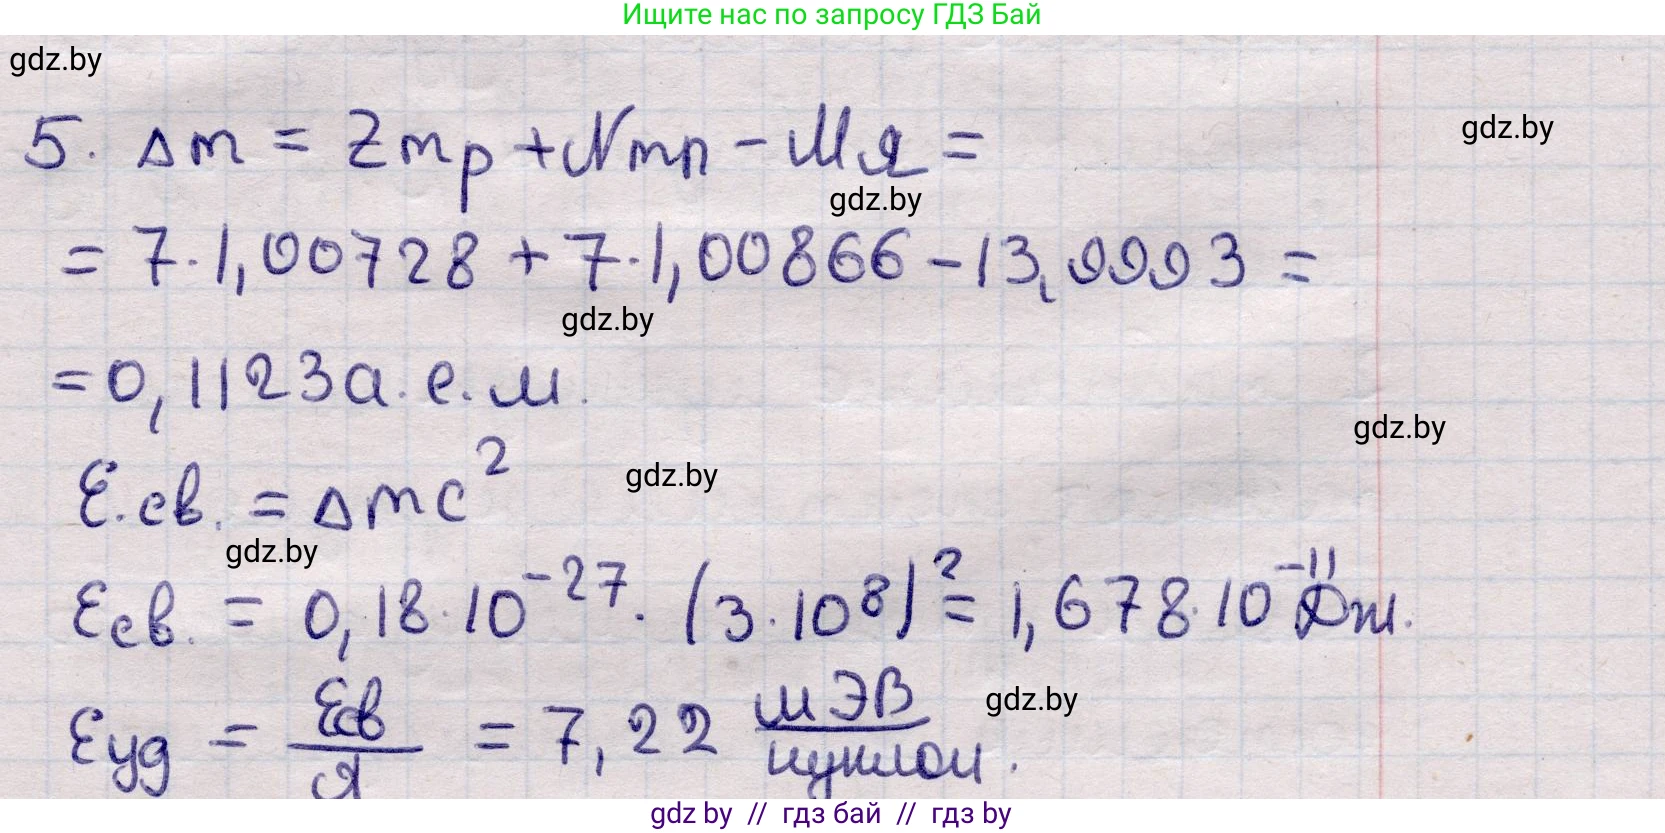 Ищите нас по запросу ГДЗ Бай
gdz.by
5. Δm = Zmp + Nmn - Mя =
gdz.by
gdz.by
= 7·1,00728 + 7·1,00866 - 13,9993 =
gdz.by
= 0,1123 а.е.м.
gdz.by
E.св. = Δmc²
gdz.by
gdz.by
Eсв. = 0,18·10⁻²⁷·(3·10⁸)² = 1,678·10⁻¹¹ Дж.
Eуд = Eсв/Я = 7,22 мЭВ/нуклон.
gdz.by
gdz by // гдз бай // гдз by